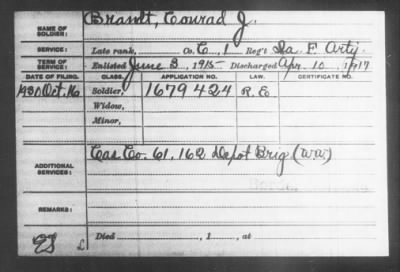 NAME OF SOLDIER: Brandt, Conrad J.
SERVICE: Late rank, Co. C, 1 Reg't Ia. F. Arty.
TERM OF SERVICE: Enlisted June 3, 1915 Discharged Apr. 10, 1917
DATE OF FILING. CLASS. APPLICATION NO. LAW. CERTIFICATE NO.
1930 Oct. 16 Soldier, 1679424 R.E.
Widow,
Minor,
ADDITIONAL SERVICES: Cas. Co. 61, 162 Depot Brig (WW)
REMARKS:
Died , 1 , at